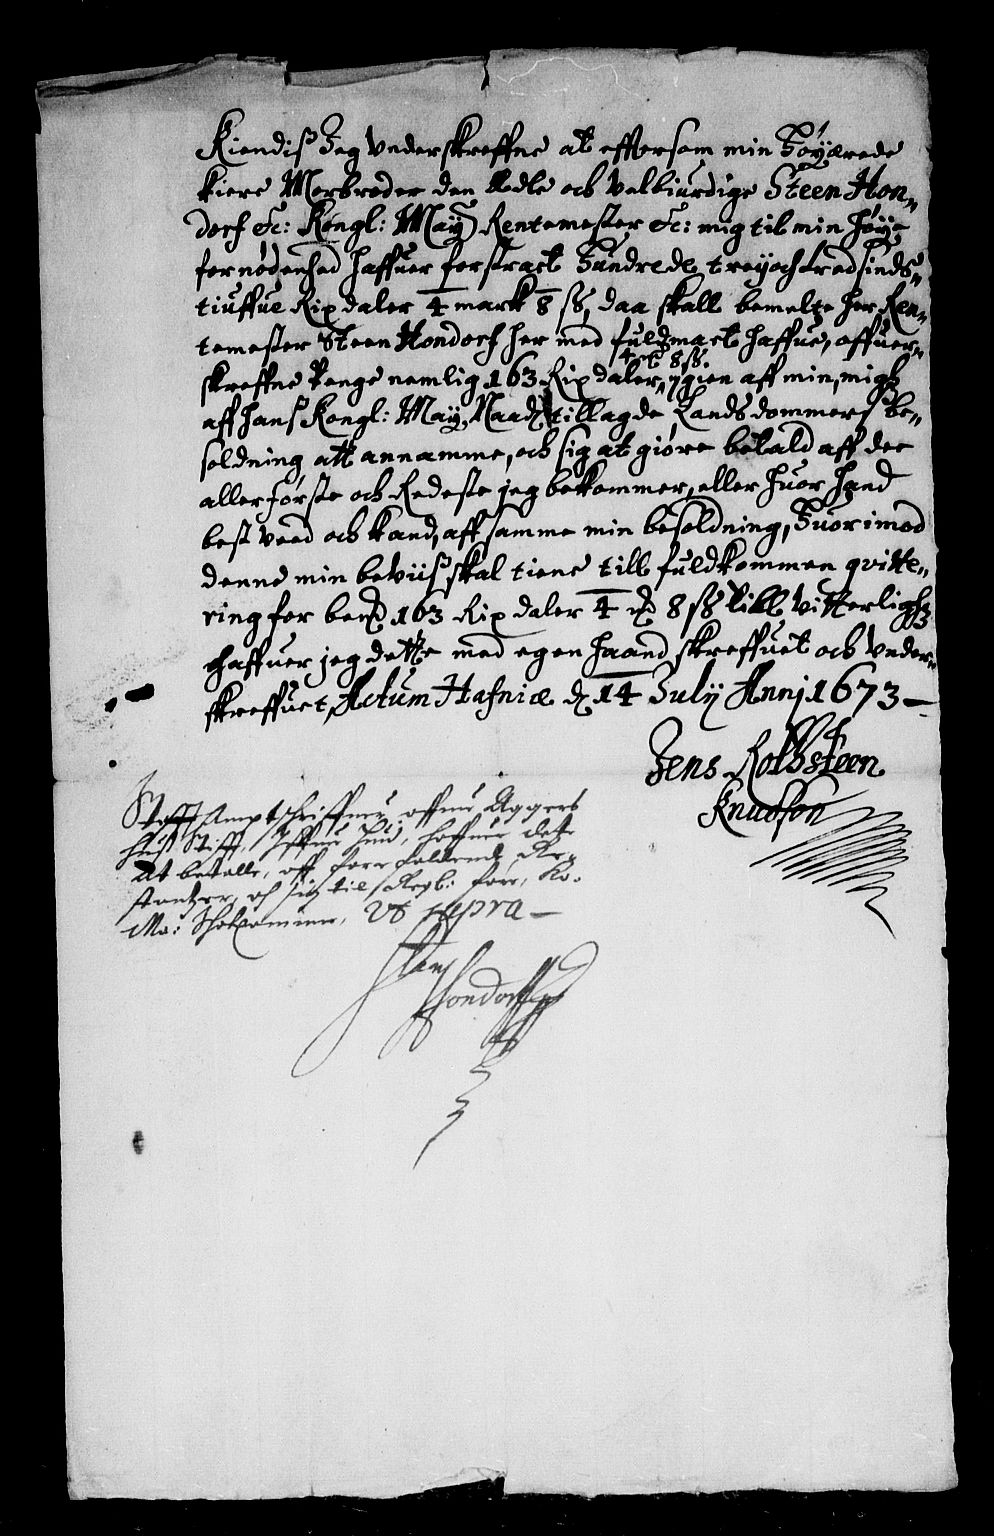 Kiendiß Jeg underskreffne at effersom min Høyærede
kiere Morbroder den Ædle och Velbiurdige Steen Hon-
dorf &c: Kongl: May Rentemester &c: mig til min høye
fornødenhed haffuer forstract Hundrede treyochtredsinds-
tiuffue Rix daler 4 mark 8 ß, daa skall bemelte her Ren-
temester Steen Hondorf her med fuldmact haffue, offuer-
4 mk 8 ß.
skreffne Penge nemlig 163 Rix daler, igien aff min, migh
aff hans Kongl: May, Naad tillagde Landsdommers be-
soldning att annamme, och sig at giøre betald aff dee
allerførste och Redeste jeg bekommer, eller huor hand
best veed och kand, aff samme min besoldning, Huorimod
denne min beviiß skal tiene till fuldkommen qvitte-
ring for bend 163 Rix daler 4 mk 8 ß Till Vitterligh
haffuer jeg dette med egen haand skreffuet och under-
skreffuet, Actum Hafniæ d 14 Julij Anni 1673
Jens Rolbsteen
Knudsøn
Amptschriffuer offuer Aggers
huß Stifft, haffuer dete
At betalle, aff
och til
Ma: Ut supra
Steen
Hondorff